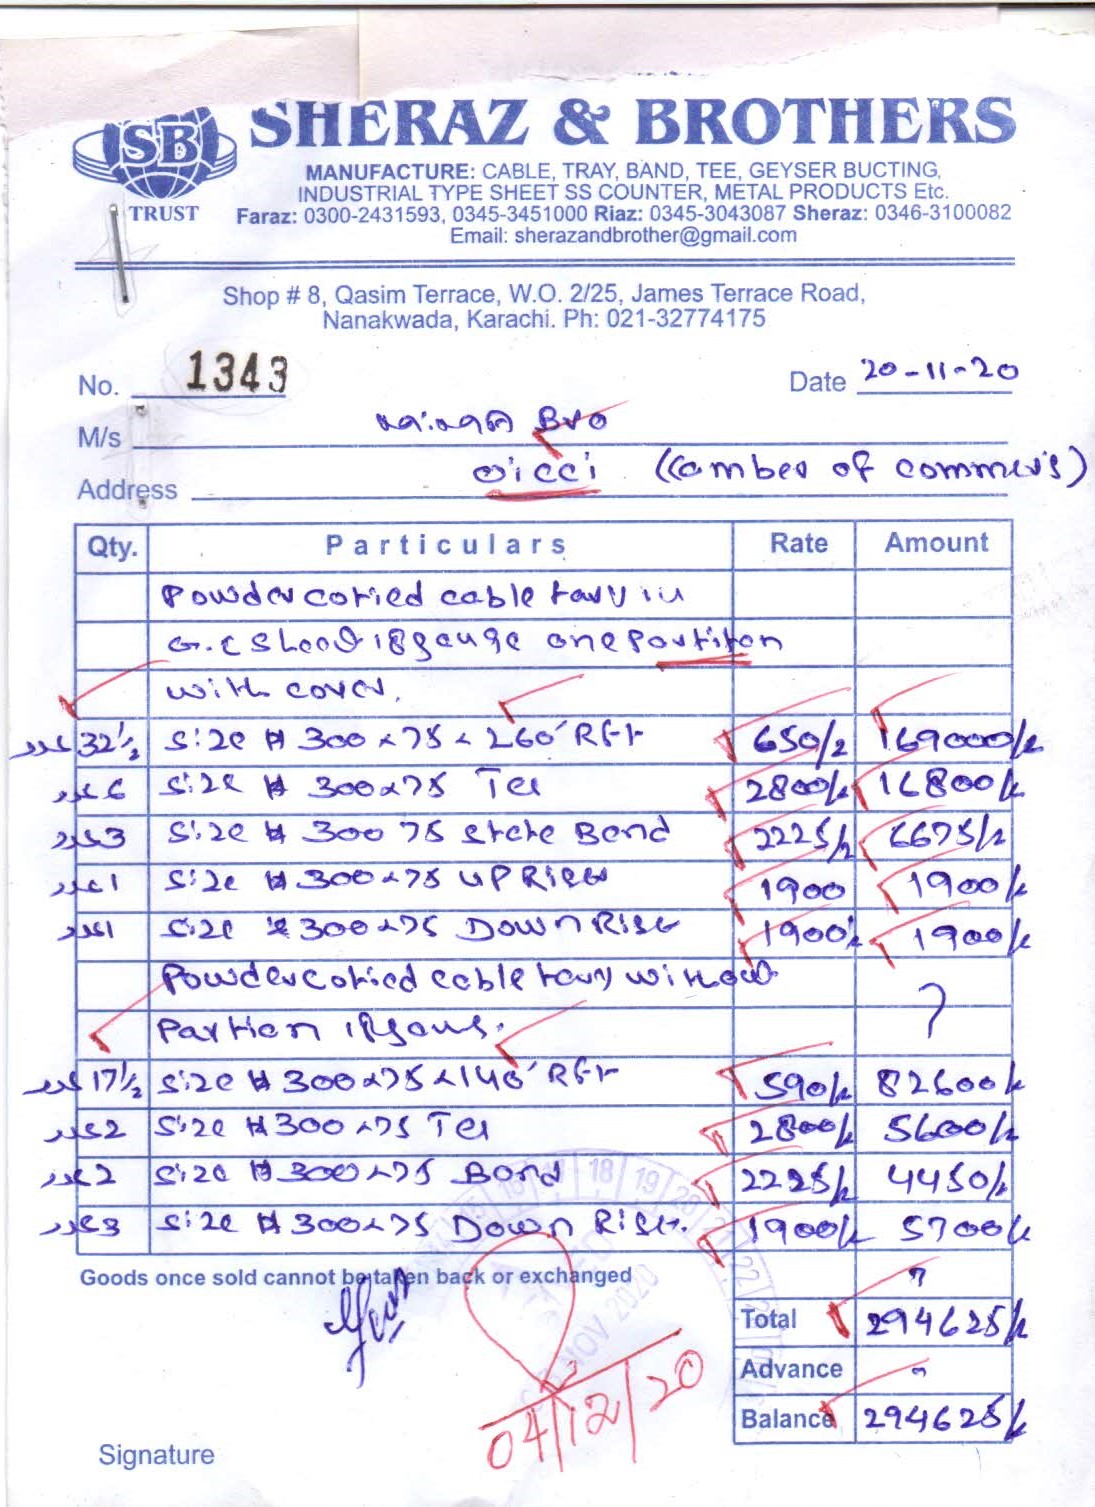 SB
TRUST
SHERAZ & BROTHERS
MANUFACTURE: CABLE, TRAY, BAND, TEE, GEYSER BUCTING,
INDUSTRIAL TYPE SHEET SS COUNTER, METAL PRODUCTS Etc.
Faraz: 0300-2431593, 0345-3451000 Riaz: 0345-3043087 Sheraz: 0346-3100082
Email: sherazandbrother@gmail.com
Shop # 8, Qasim Terrace, W.O. 2/25, James Terrace Road,
Nanakwada, Karachi. Ph: 021-32774175
No. 1343 Date 20-11-20
M/s Bro
Address oicci (Camber of commers)
Qty. Particulars Rate Amount
Powder coried cable tary in
18 gauge one Partiton
with cover.
32½ عدد Size # 300 x 75 x 260' Rft 650/= 169000/=
6 عدد Size # 300x75 Tee 2800/= 16800/=
3 عدد Size # 300 75 Bend 2225/= 6675/=
1 عدد Size # 300x75 UP Rise 1900 1900/=
1 عدد Size # 300x75 Down Rise 1900/= 1900/=
Powder coried cable tary without
Partion
17½ عدد Size # 300x75x140' Rft 590/= 82600/=
2 عدد Size # 300x75 Tee 2800/= 5600/=
2 عدد Size # 300x75 Bend 2225/= 4450/=
3 عدد Size # 300x75 Down Rise. 1900/= 5700/=
Goods once sold cannot be taken back or exchanged
Total 294625/=
Advance
Balance 294625/=
16 17 18 19 20 21 22
NOV 2020
04/12/20
Signature